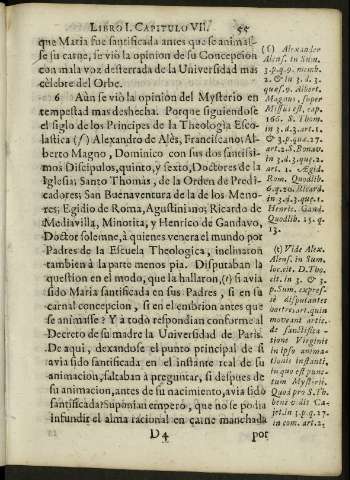 LIBRO I. CAPITULO VII. 55
que Maria fue santificada antes que se animas-
se su carne, se viò la opinion de su Concepcion
con mala voz desterrada de la Universidad mas
celebre del Orbe.
6. Aũn se viò la opiniòn del Mysterio en
tempestad mas deshecha. Porque siguiendose
el siglo de los Principes de la Theologia Esco-
lastica (ſ) Alexandro de Alès, Franciscano; Al-
berto Magno, Dominico con sus dos santissi-
mos Discipulos, quinto, y sexto, Doctores de la
Iglesia; Santo Thomàs, de la Orden de Predi-
cadores; San Buenaventura de la de los Meno-
res; Egidio de Roma, Agustiniano; Ricardo de
Mediavilla, Minorita, y Henrico de Gandavo,
Doctor solemne, à quienes venera el mundo por
Padres de la Escuela Theologica, inclinaron
tambien à la parte menos pia. Disputaban la
question en el modo, que la hallaron, (t) si avia
sido Maria santificada en sus Padres, si en su
carnal concepcion, si en el enbrion antes que
se animasse? Y à todo respondian conforme al
Decreto de su madre la Universidad de Paris.
De aqui, dexandose el punto principal de si
avia sido santificada en el instante real de su
animacion, saltaban à preguntar, si despues de
su animacion, antes de su nacimiento, avia sido
santificada? Suponian empero, que no se podia
infundir el alma racional en carne manchada
D 4 por
(ſ) Alexander
Alens. in Sum.
3. p. q. 9. membr.
2. & in 3. d.
ques. 9. Albert.
Magnus, super
Missus est, cap.
166. S. Thom.
in 3. d. 3. art. 1.
& 3. p. qua. 27.
art. 2. S. Bonav.
in 3. d. 3. que. 2.
art. 1. Ægid.
Rom. Quodlib.
6. q. 20. Ricard.
in 3. d. 3. que. 1.
Henric. Gand.
Quodlib. 15. q.
13.
(t) Vide Alex.
Alens. in Sum.
loc. cit. D. Tho.
cit. in 3. & 3.
p. Sum. expres-
sè disputantes
quin
movean artic.
de sanctifica-
tione Virginis
in ipso anima-
tionis instanti,
in que est punc-
tum Mysterii.
Quod pro S. Th.
bene vidit Ca-
jet. in 3. p. q. 27.
in com. art. 2.